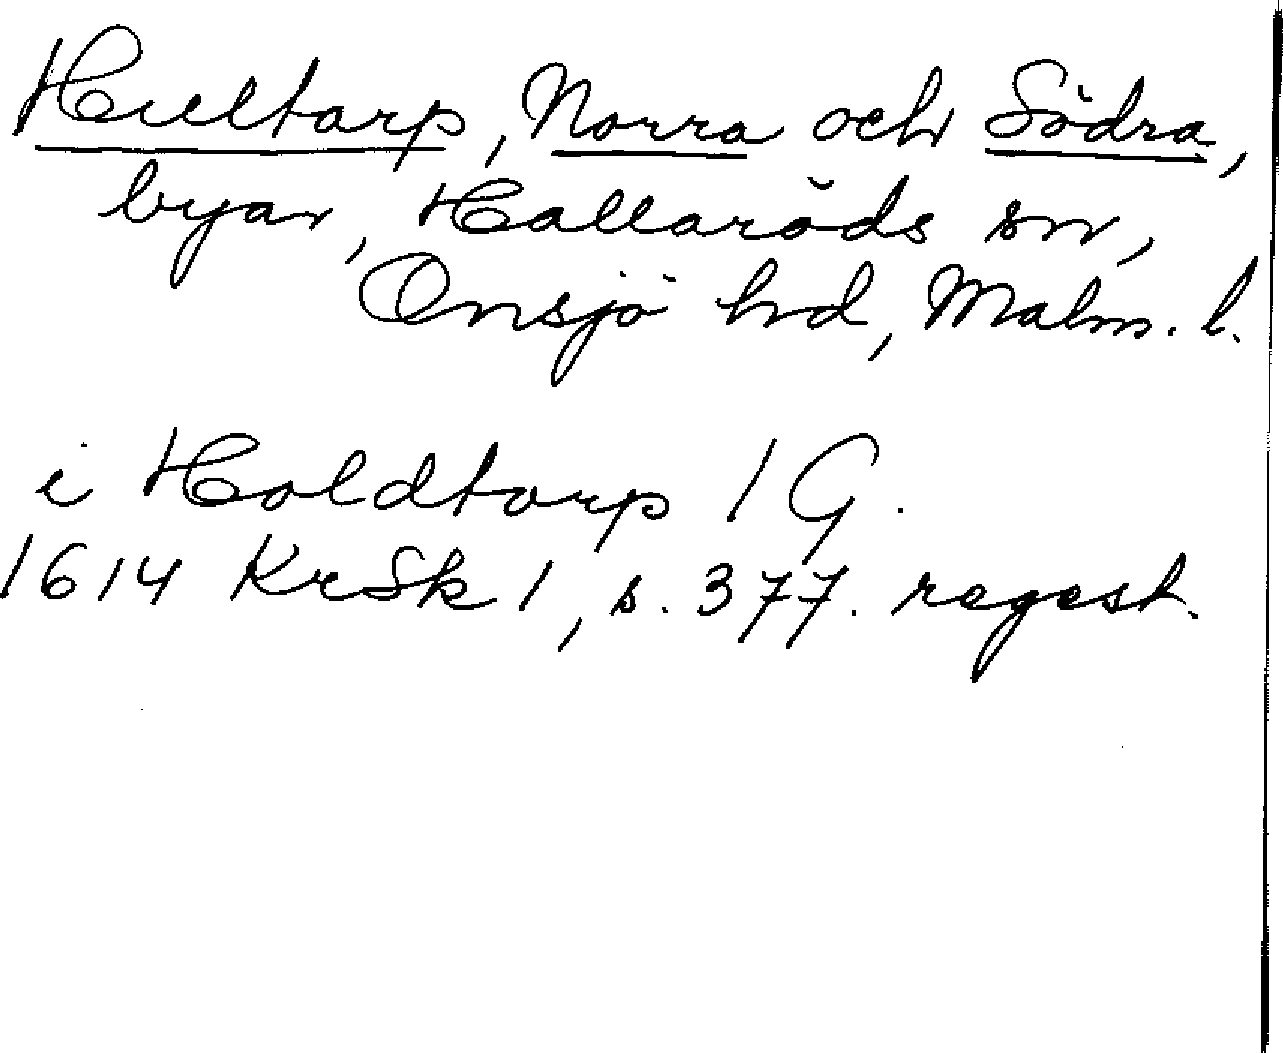 Hultarp, Norra och Södra,
byar, Hallaröds sn,
Onsjö hrd, Malm. l.
i Holdtorp 1 G.
1614 KrSk 1, s. 377. regest.